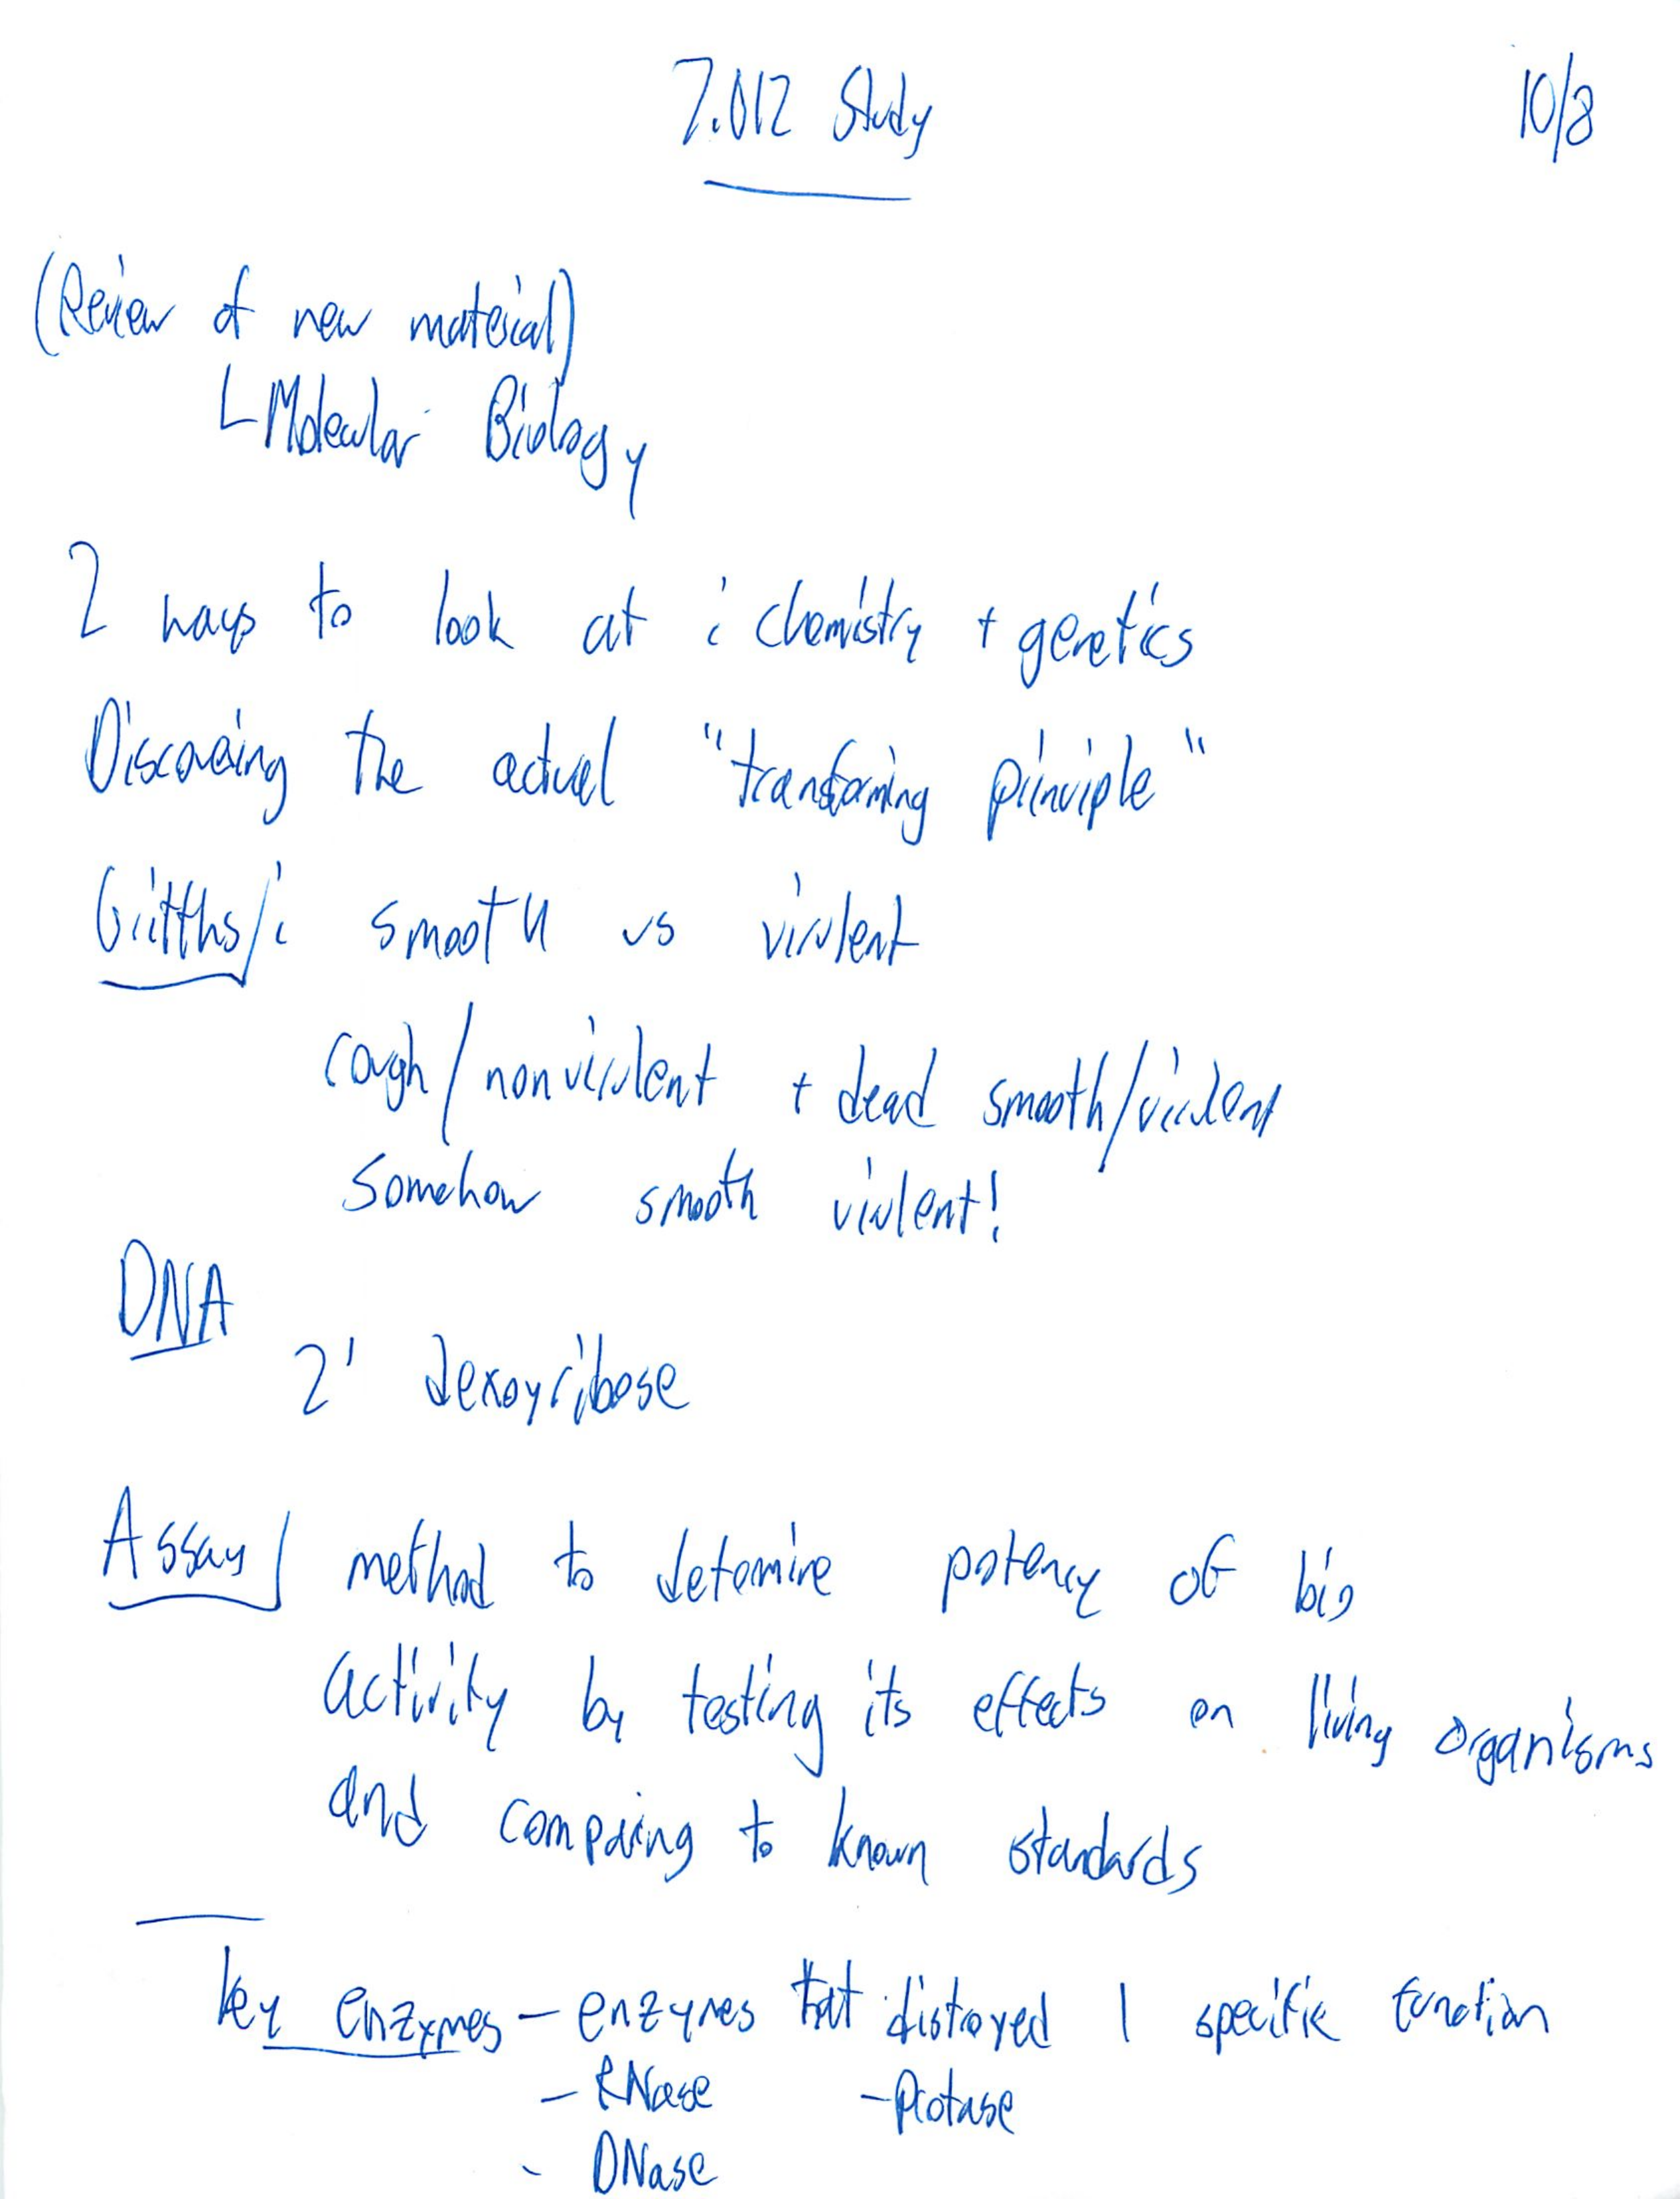 7.012 Study 10/8
(Review of new material)
Molecular Biology
2 ways to look at : chemistry + genetics
Discovering the actual "transforming principle"
Griffths/: smooth vs virulent
rough/nonvirulent + dead smooth/virulent
somehow smooth virulent!
DNA
2' dexoyribose
Assay method to determine potency of bio
activity by testing its effects on living organisms
and comparing to known standards
key enzymes - enzymes that distroyed 1 specific function
- RNase - Protase
- DNase